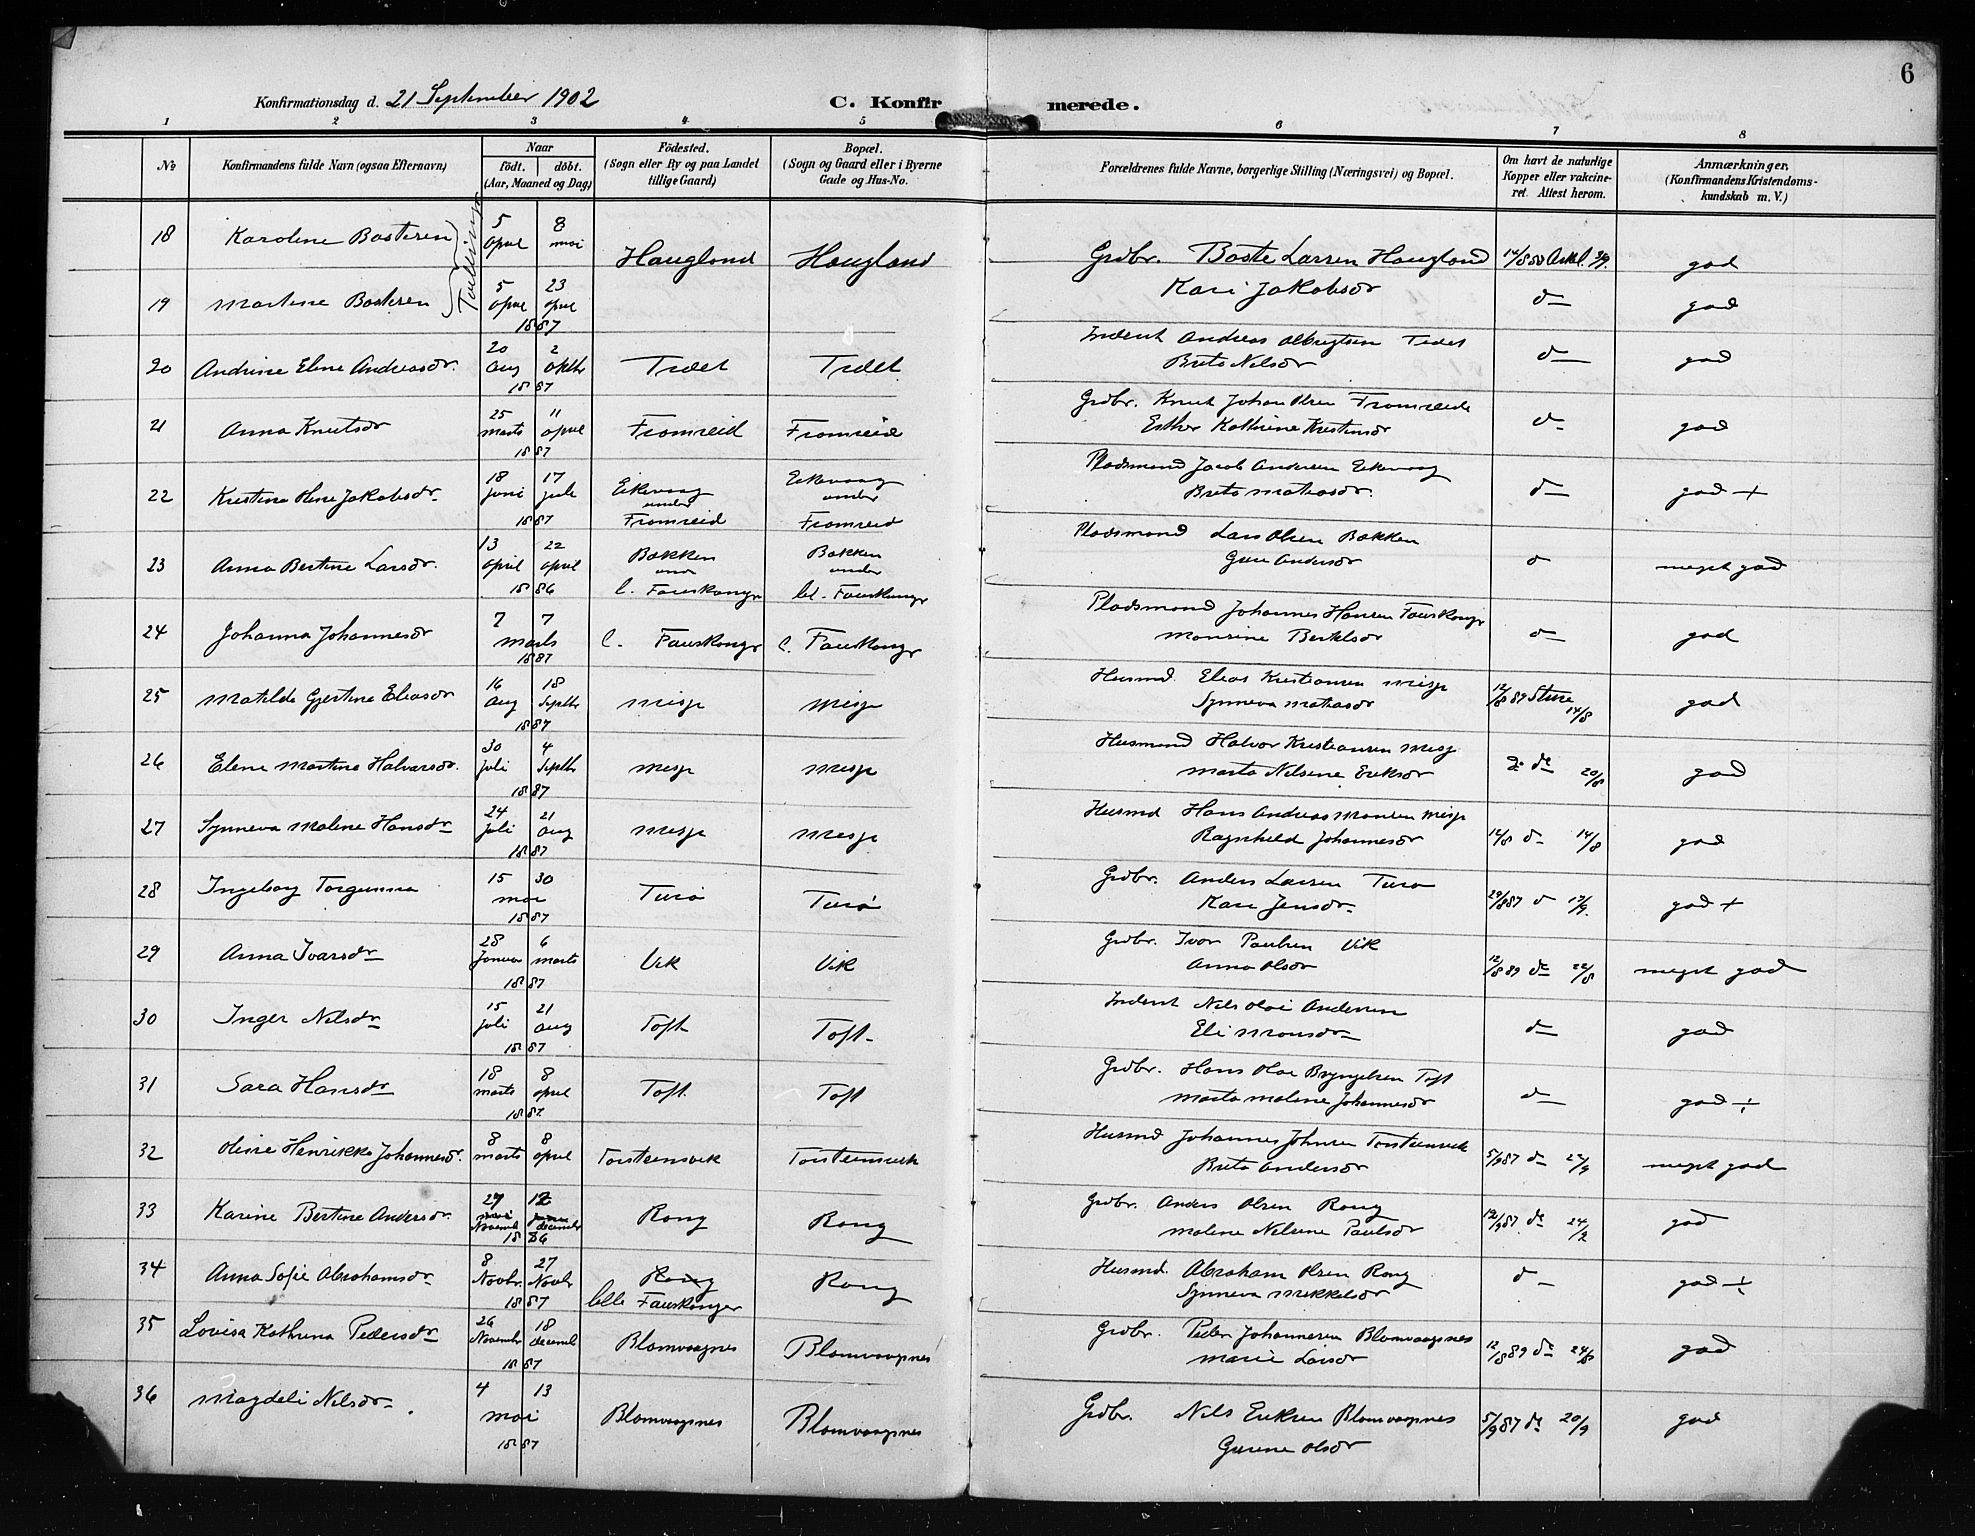 6
Konfirmationsdag d. 21 September 1902 C. Konfirmerede.
1 2 3 4 5 6 7 8
No Konfirmandens fulde Navn (ogsaa Efternavn) Naar födt. döbt. (Aar, Maaned og Dag) Födested. (Sogn eller By og paa Landet tillige Gaard) Bopæl. (Sogn og Gaard eller i Byerne Gade og Hus-No. Forældrenes fulde Navne, borgerlige Stilling (Næringsvei) og Bopæl. Om havt de naturlige Kopper eller vakcineret. Attest herom. Anmærkninger, (Konfirmandens Kristendomskundskab m. V.)
18 Karoline Bastesen 5 April 8 mai Haugland Haugland Grdbr. Baste Larsen Haugland god
Tvillinger
19 Martine Bastesen 5 April 23 April 1887 Kari Jakobsdr d— god
20 Andrine Elene Andreasdr. 20 Aug 2 Oktbr 1887 Tjeldet Inderst Andreas Albrigtsen
Brita Nilsdr d— god
21 Anna Knutsdr 25 marts 11 April 1887 Fromreid Fromreid Grdbr. Knut Johan Olsen Fromreide
Esther Kathrine Kristensdr d— god
22 Kristina Oline Jakobsdr. 18 Juni 17 Juli 1887 Eikevaag under Fromreid Eikevaag under Fromreid Pladsmand Jacob Andersen Eikevaag
Brita Matiasdr. d— god +
23 Anna Bertine Larsdr. 13 April 22 April 1886 Bakken under l. Fauskanger Bakken under ltl. Fauskanger Pladsmand Lars Olsen Bakken
Guri Andersdr d meget god
24 Johanna Johannesdr 7 7 Marts 1887 l. Fauskangr l. Fauskangr Pladsmand Johannes Hansen Fauskangr
Monsine Bertelsdr d— god
25 Matilde Gjertine Eliasdr 16 Aug 18 Septbr 1887 Misje Misje Husmd. Elias Kristiansen Misje
Synneva Matiasdr 12/8 89 Stene 14/8 god
26 Elene Martine Halvorsdr. 30 Juli 4 Septbr 1887 Misje Misje Husmand Halvor Kristiansen Misje
Marta Nilsine Eriksdr do 20/8 god
27 Synneva Malene Hansdr 24 Juli 21 Aug 1887 Misje Misje Husmd Hans Andreas Monsen Misje
Ragnhild Johannesdr 14/8 d— 14/8 god
28 Ingeborg 15 30 mai 1887 Turö Turö Grdbr. Anders Larsen Turö
Kari Jensdr. 29/8 87 d god +
29 Anna Ivarsdr 28 Januar 6 marts 1887 Vik Vik Grdbr. Ivar Paulsen Vik
Anna Olsdr 12/8 89 do 22/8 meget god
30 Inger Nilsdr 15 Juli 21 Aug 1887 Toft Toft Inderst Nils Olai Andersen
Eli Monsdr d— god
31 Sara Hansdr 18 marts 8 April 1887 Toft Toft Grdbr. Hans Olai Bryngelsen Toft
Marta Malene Johannesdr d— god ÷
32 Oline Henrikka Johannesdr. 8 marts 8 April Torsteinsvik Torsteinsvik Husmd Johannes Johnsen Torsteinsvik
Brita Andersdr 5/9 87 do 22/9 meget god
33 Karine Bertine Andersdr. 27 Novembr 12 decembr 1886 Rong Rong Grdbr. Anders Olsen Rong
Malene Nilsine Paulsdr 12/9 87 do god
34 Anna Sofie Abrahamsdr. 8 Novbr. 27 Novbr 1887 Rong lille Fauskanger Rong Husmd. Abraham Olsen Rong
Synneva Mikkelsdr d— god ÷
35 Lovisa Kathrina Pedersdr 26 Novembr 18 decembr 1887 Blomvaagnes Blomvaagnes Grdbr. Peder Johannesen Blomvaagnes
Marie Larsdr 12/8 89 do 24/8 god
36 Magdeli Nilsdr 4 13 mai 1887 Blomvaagnes Blomvaagnes Grdbr. Nils Eriksen Blomvaagnes
Gurine Olsdr 5/9 87 do 20/9 god